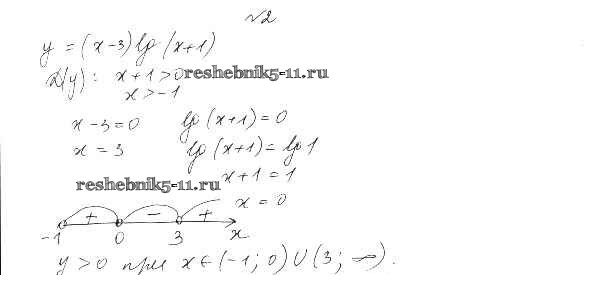 √2
y = (x-3) lg (x+1)
D(y): x+1>0 reshebnik5-11.ru
x>-1
x-3=0 lg (x+1)=0
x = 3 lg (x+1)= lg 1
reshebnik5-11.ru x+1 = 1
x = 0
+ - +
-1 0 3 x
y>0 при x∈(-1; 0) U (3; ∞).